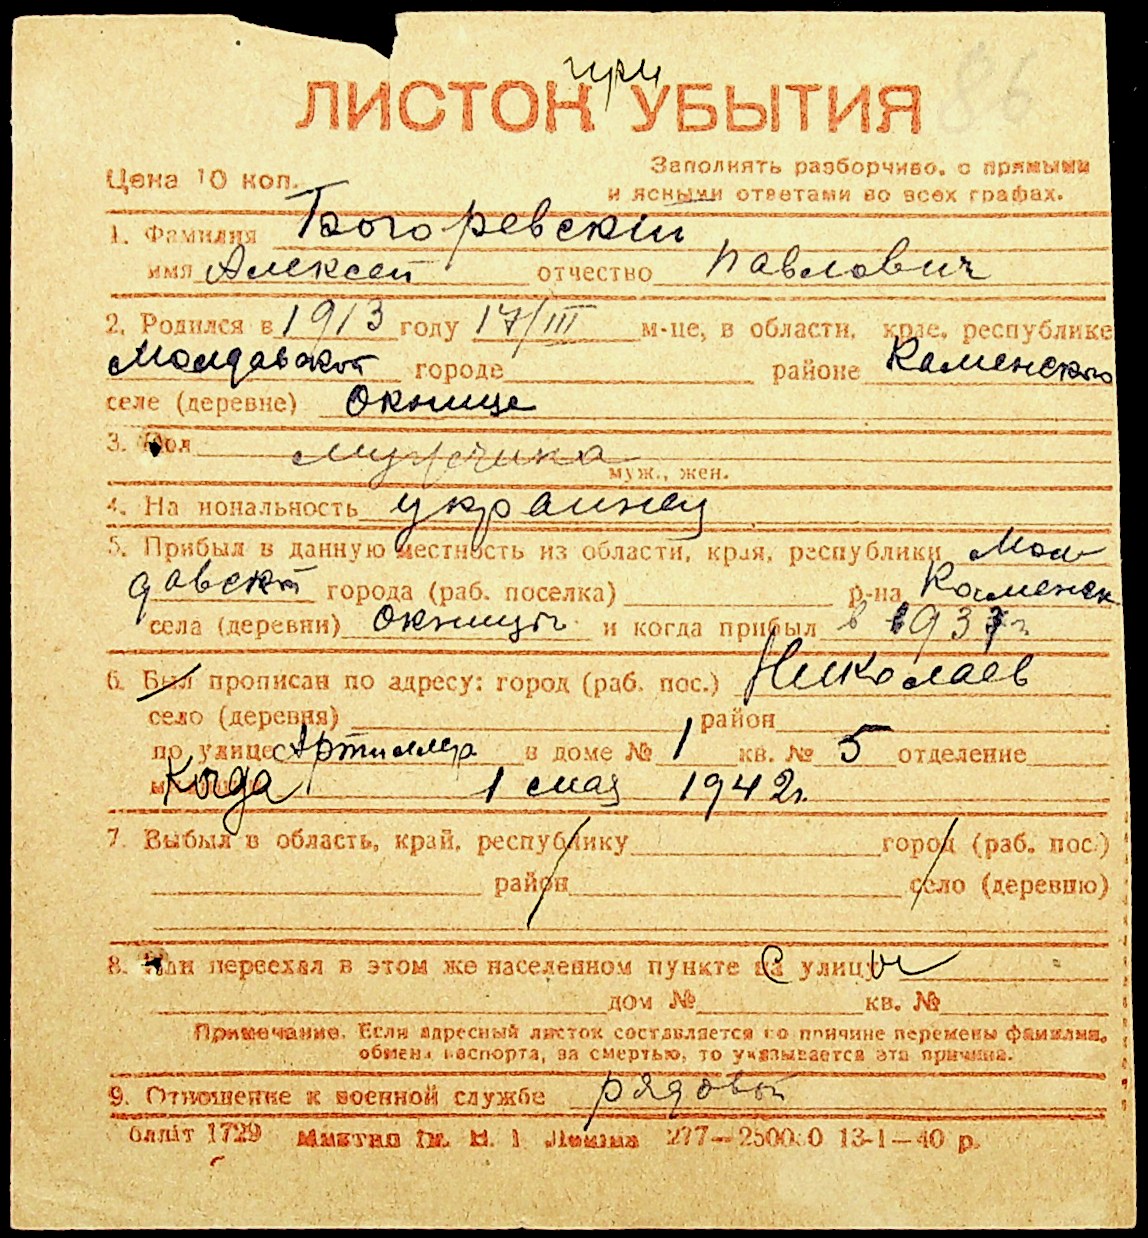 при
86
ЛИСТОК УБЫТИЯ
Цена 10 коп.
Заполнять разборчиво, с прямыми
и ясными ответами во всех графах.
1. Фамилия Богоревский
имя Алексей отчество Павлович
2. Родился в 1913 году 17/III м-це, в области, крае, республике
Молдавской городе районе Каменского
селе (деревне) Окнице
3. Пол мужчина
муж., жен.
4. На иональность украинец
5. Прибыл в данную местность из области, края, республики Мол-
давской города (раб. поселка) р-на Каменск
села (деревни) Окницы и когда прибыл в 1937 г
6. Был прописан по адресу: город (раб. пос.) Николаев
село (деревня) район
по улице Артиллер в доме № 1 кв. № 5 отделение
Когда 1 мая 1942 г.
7. Выбыл в область, край, республику город (раб. пос.)
район село (деревню)
8. Или переехал в этом же населенном пункте на улицу
дом № кв. №
Примечание. Если адресный листок составляется по причине перемены фамилии,
обмена паспорта, за смертью, то указывается эта причина.
9. Отношение к военной службе рядовой
1729 277—2500 0 13-1—40 р.